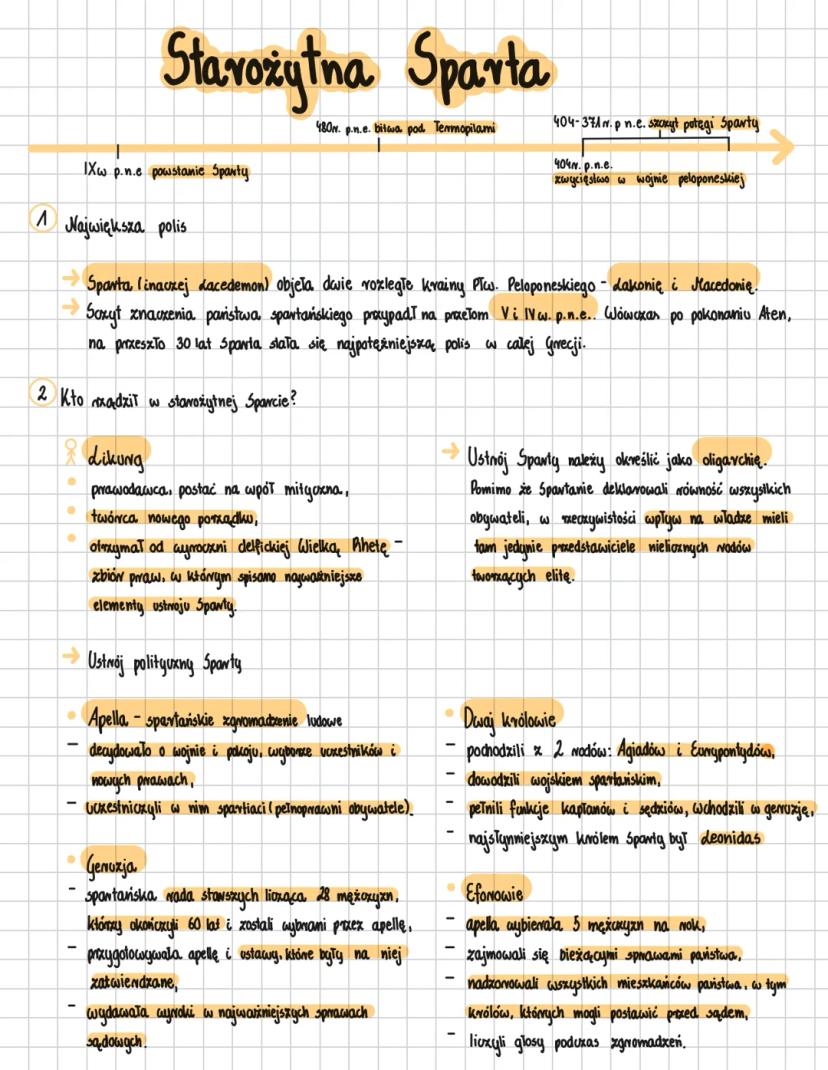 Starożytna Sparta
480r. p.n.e. bitwa pod Termopilami
404-371r. p n.e. szczyt potęgi Sparty
IXw p.n.e powstanie Sparty
404r. p.n.e.
zwycięstwo w wojnie peloponeskiej
1 Największa polis
→ Sparta (inaczej Lacedemon) objęła dwie rozległe krainy Płw. Peloponeskiego - Lakonię i Macedonię.
→ Szczyt znaczenia państwa spartańskiego przypadł na przełom V i IV w. p.n.e.. Wówczas po pokonaniu Aten,
na przeszło 30 lat Sparta stała się najpotężniejszą polis w całej Grecji.
2 Kto rządził w starożytnej Sparcie?
Likurg
• prawodawca, postać na wpół mityczna,
• twórca nowego porządku,
• otrzymał od wyroczni delfickiej Wielką Rhetę -
zbiór praw, w którym spisano najważniejsze
elementy ustroju Sparty.
→ Ustrój Sparty należy określić jako oligarchię.
Pomimo że Spartanie deklarowali równość wszystkich
obywateli, w rzeczywistości wpływ na władze mieli
tam jedynie przedstawiciele nielicznych rodów
tworzących elitę.
→ Ustrój polityczny Sparty
• Apella - spartańskie zgromadzenie ludowe
- decydowało o wojnie i pokoju, wyborze uczestników i
nowych prawach,
- uczestniczyli w nim spartiaci (pełnoprawni obywatele).
• Geruzja
- spartańska rada starszych licząca 28 mężczyzn,
którzy ukończyli 60 lat i zostali wybrani przez apellę,
- przygotowywała apellę i ustawy, które były na niej
zatwierdzane,
- wydawała wyroki w najważniejszych sprawach
sądowych.
• Dwaj królowie
- pochodzili z 2 rodów: Agiadów i Eurypontydów,
- dowodzili wojskiem spartańskim,
- pełnili funkcje kapłanów i sędziów, wchodzili w geruzję,
- najsłynniejszym królem Sparty był Leonidas
• Eforowie
- apella wybierała 5 mężczyzn na rok,
- zajmowali się bieżącymi sprawami państwa,
- nadzorowali wszystkich mieszkańców państwa, w tym
królów, których mogli postawić przed sądem,
- liczyli głosy podczas zgromadzeń.